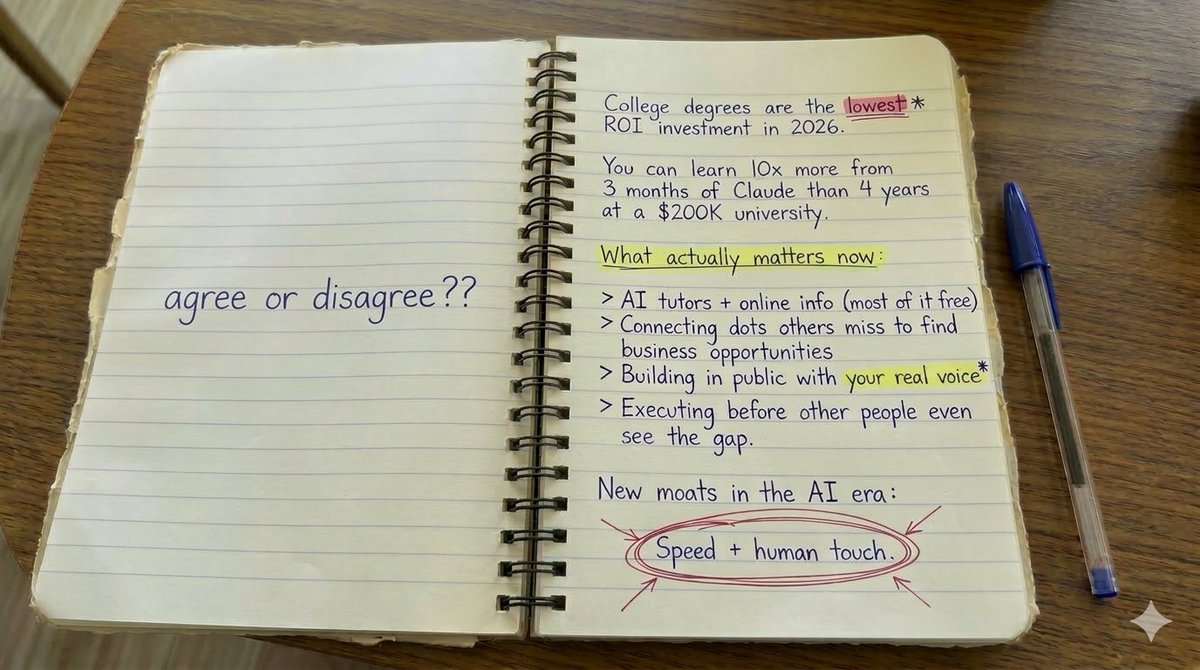 agree or disagree??
College degrees are the lowest*
ROI investment in 2026.
You can learn 10x more from
3 months of Claude than 4 years
at a $200K university.
What actually matters now:
> AI tutors + online info (most of it free)
> Connecting dots others miss to find
business opportunities
> Building in public with your real voice*
> Executing before other people even
see the gap.
New moats in the AI era:
Speed + human touch.